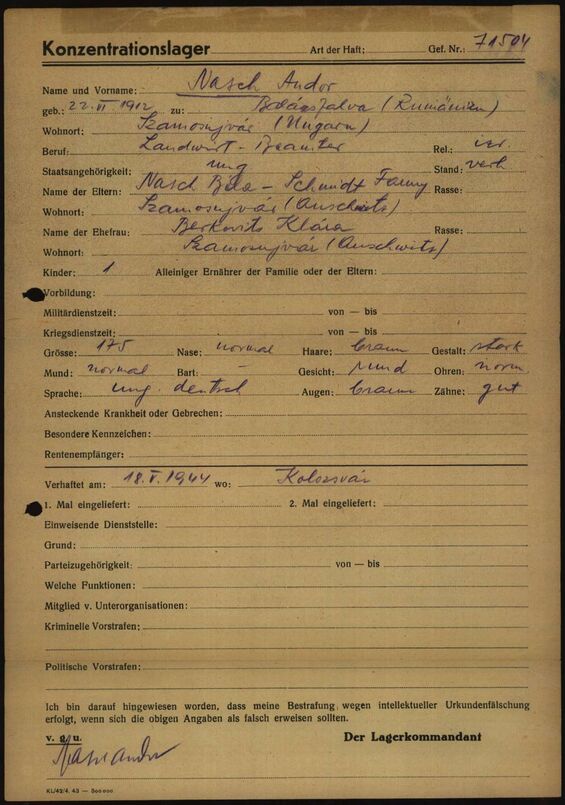 Konzentrationslager Art der Haft: Gef. Nr.: 71504
Name und Vorname: Nasch Andor
geb.: 22. VI. 1912 zu: (Rumänien)
Wohnort: Szamosujvár (Ungarn)
Beruf: Landwirt - Beamter Rel.: isr.
Staatsangehörigkeit: ung Stand: verh
Name der Eltern: Nasch Béla - Schmidt Fanny Rasse:
Wohnort: Szamosujvár (Auschwitz)
Name der Ehefrau: Berkovits Klára Rasse:
Wohnort: Szamosujvár (Auschwitz)
Kinder: 1 Alleiniger Ernährer der Familie oder der Eltern:
Vorbildung:
Militärdienstzeit: von — bis
Kriegsdienstzeit: von — bis
Grösse: 175 Nase: normal Haare: braun Gestalt: stark
Mund: normal Bart: - Gesicht: rund Ohren: norm
Sprache: ung. deutsch Augen: braun Zähne: gut
Ansteckende Krankheit oder Gebrechen:
Besondere Kennzeichen:
Rentenempfänger:
Verhaftet am: 18. V. 1944 wo: Kolozsvár
1. Mal eingeliefert: 2. Mal eingeliefert:
Einweisende Dienststelle:
Grund:
Parteizugehörigkeit: von — bis
Welche Funktionen:
Mitglied v. Unterorganisationen:
Kriminelle Vorstrafen:
Politische Vorstrafen:
Ich bin darauf hingewiesen worden, dass meine Bestrafung wegen intellektueller Urkundenfälschung
erfolgt, wenn sich die obigen Angaben als falsch erweisen sollten.
v. g. u. Der Lagerkommandant
Nasch Andor
KL/42/4. 43 — 500 000